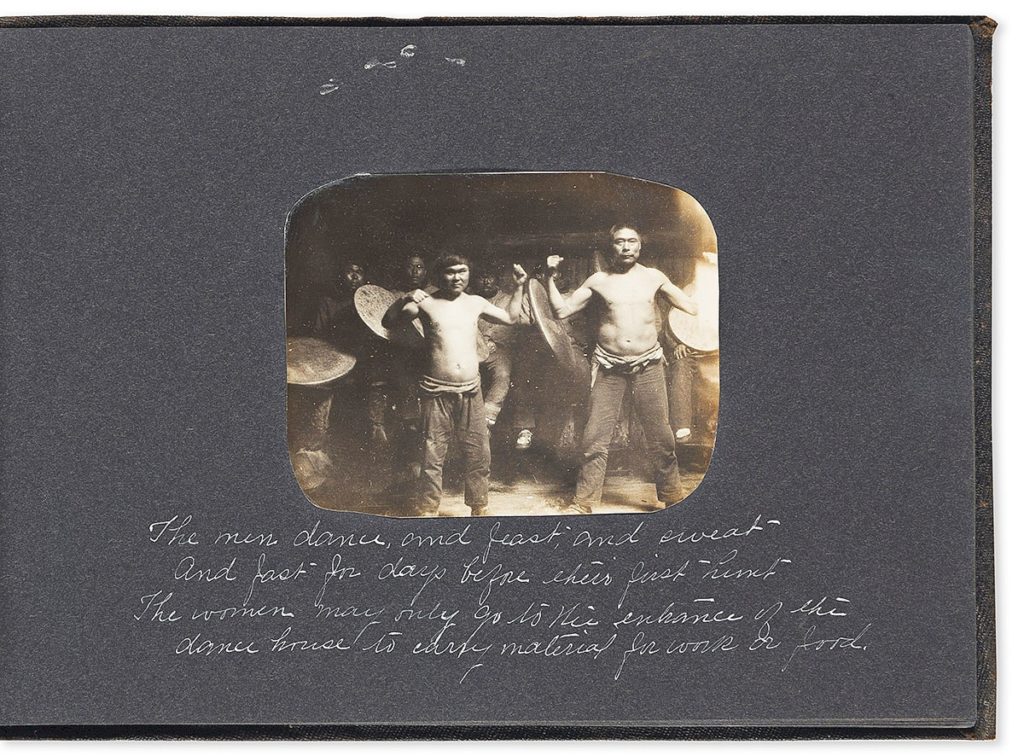 The men dance, and feast, and sweat
And fast for days before their first hunt
The women may only go to the entrance of the
dance house to carry material for work or food.